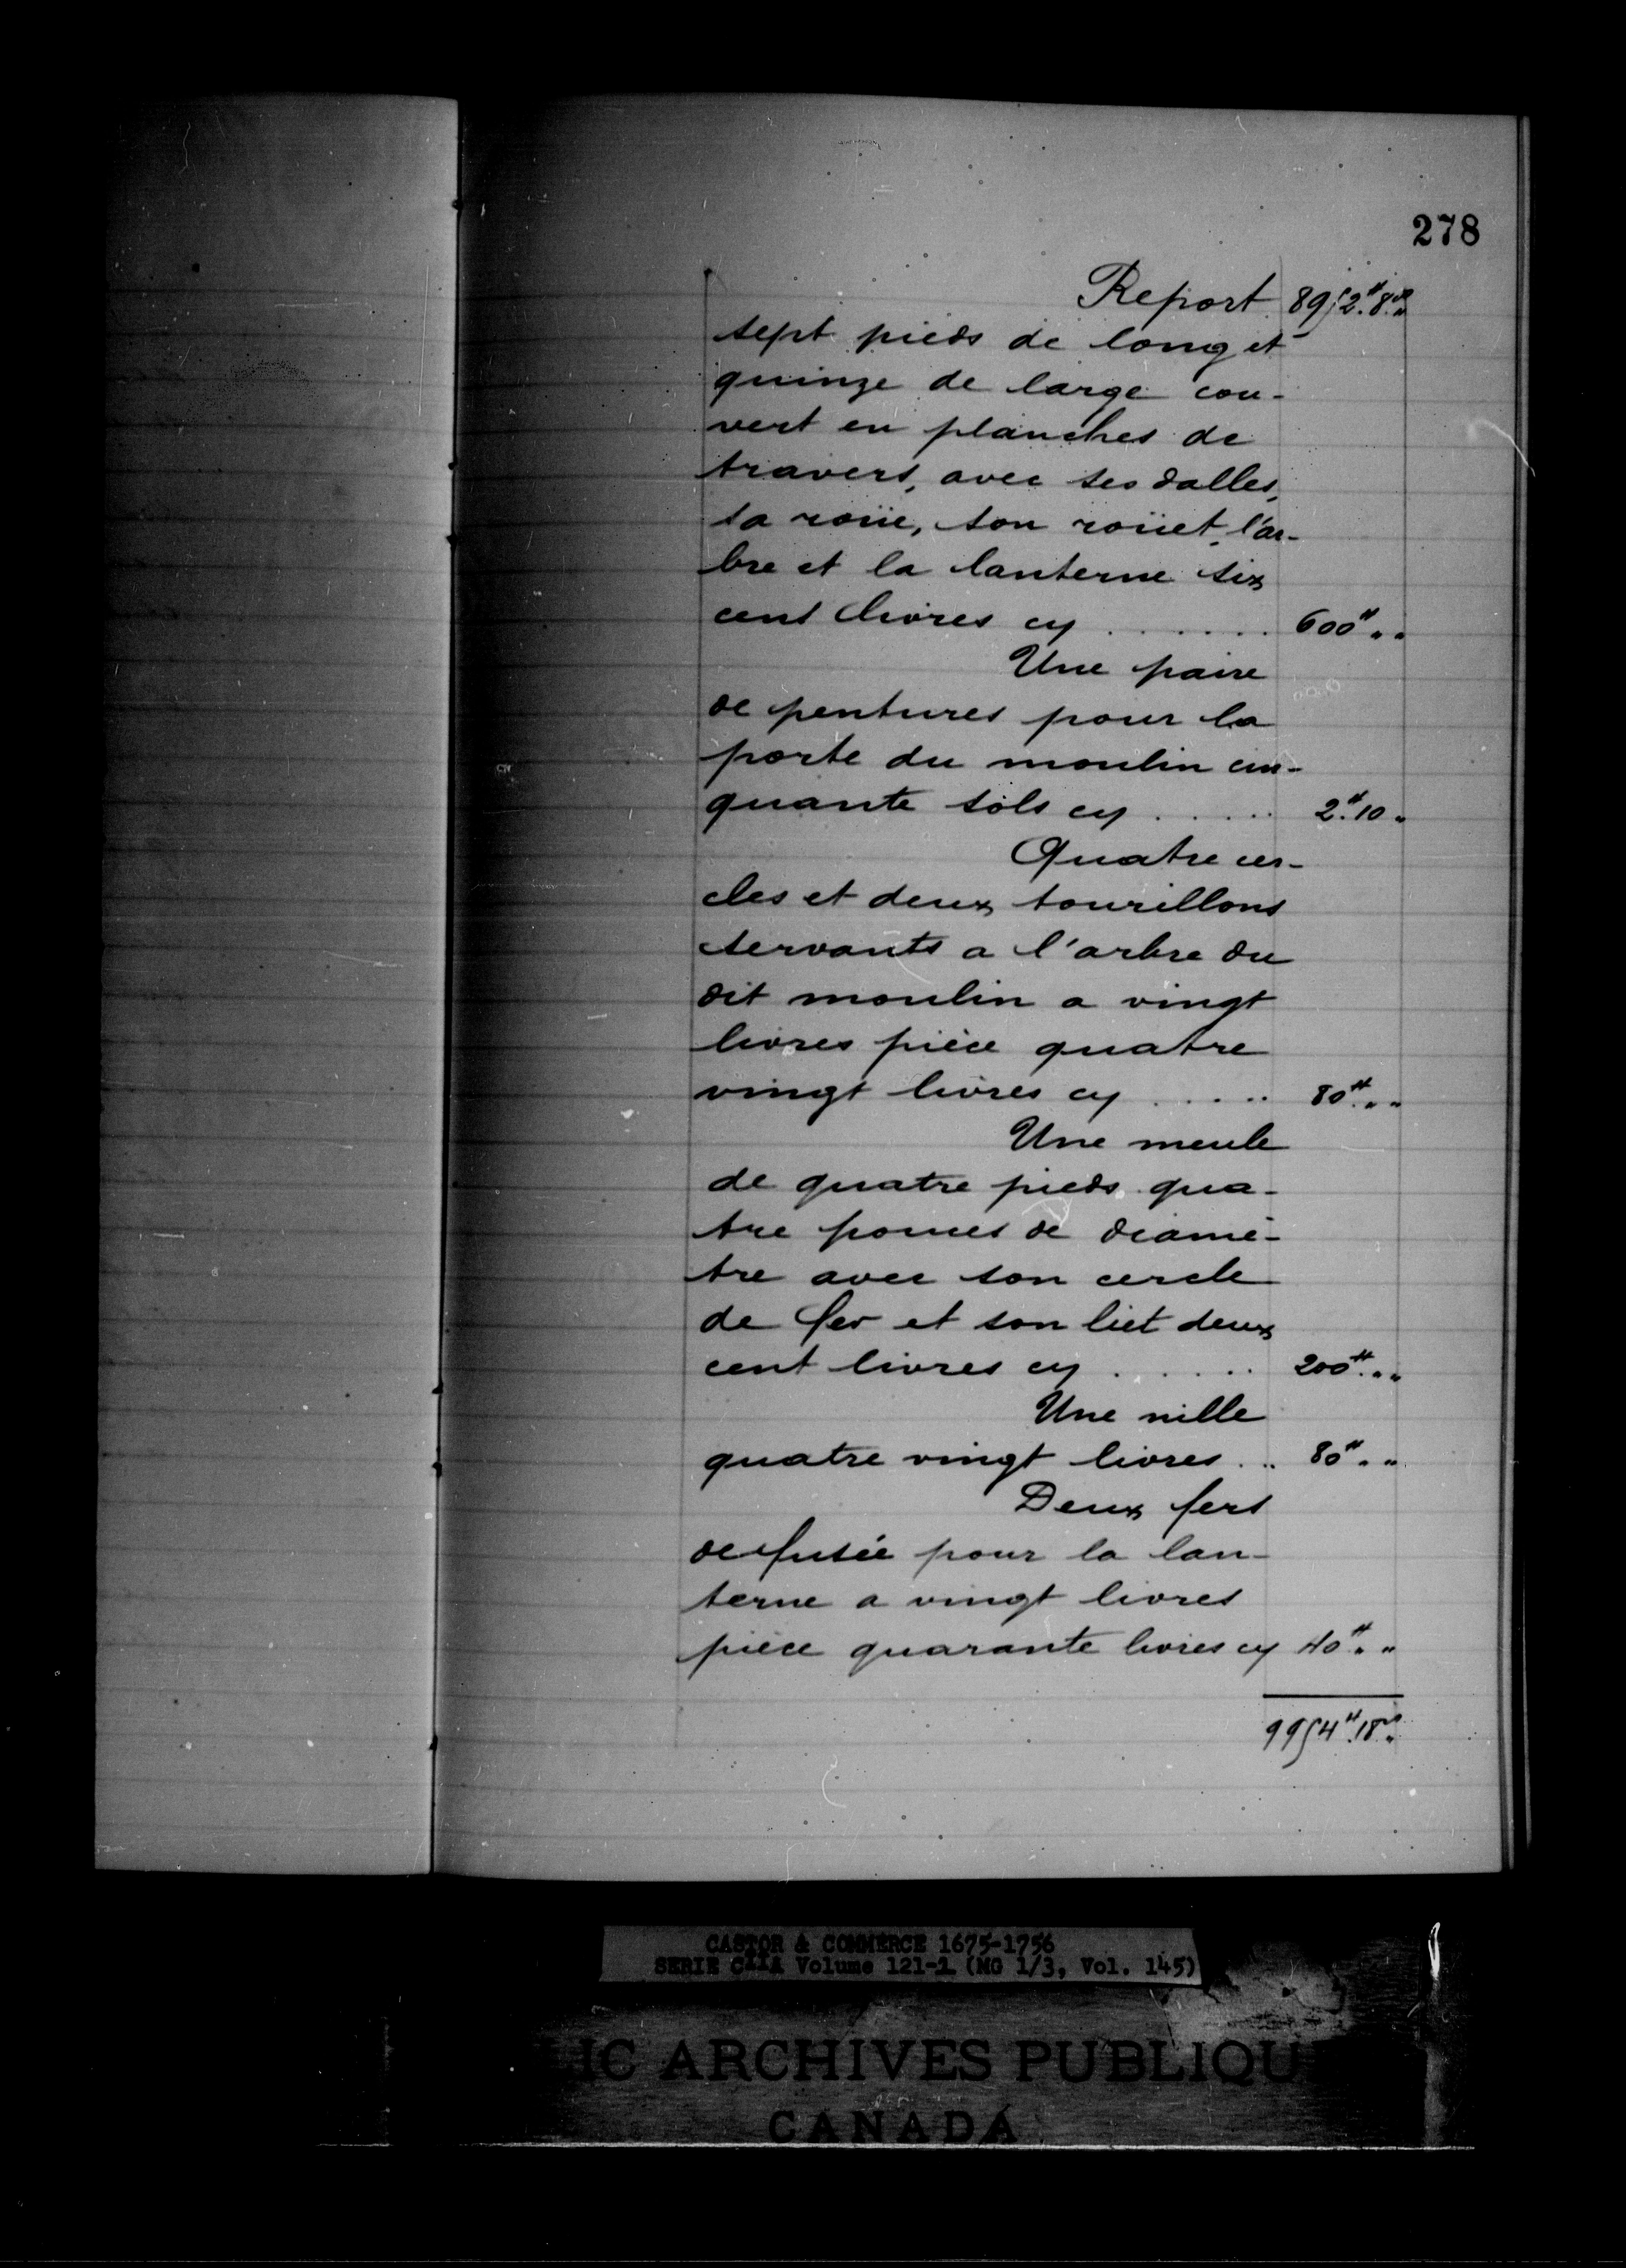 278
Report 8952#.8s.„
sept pieds de long et
quinze de large cou-
vert en planches de
travers, avec ses dalles,
sa roüe, son roüet, l'ar-
bre et la lanterne six
cent livres cy ....... 600# „ „
Une paire
de pentures pour la
porte du moulin cin-
quante sols cy ..... 2#.10 „
Quatre cer-
cles et deux tourillons
servants a l'arbre du
dit moulin a vingt
livres pièce quatre
vingt livres cy ..... 80#. „ „
Une meule
de quatre pieds qua-
tre pouces de diamè-
tre avec son cercle
de fer et son liet deux
cent livres cy ...... 200#. „ „
Une nille
quatre vingt livres .. 80# „ „
Deux fers
de fusée pour la lan-
terne a vingt livres
pièce quarante livres cy 40# „ „
9954#.18s.„
CASTOR & COMMERCE 1675-1756
SERIE C11A Volume 121-1 (MG 1/3, Vol. 145)
IC ARCHIVES PUBLIQU
CANADA